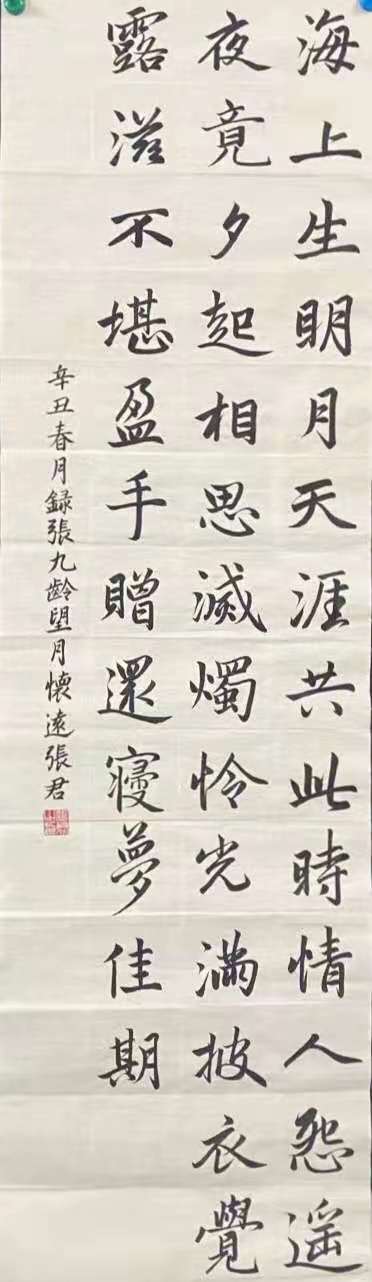 海上生明月天涯共此時情人怨遥
夜竟夕起相思滅燭怜光滿披衣覺
露滋不堪盈手贈還寢夢佳期
辛丑春月録張九齡望月懷遠張君